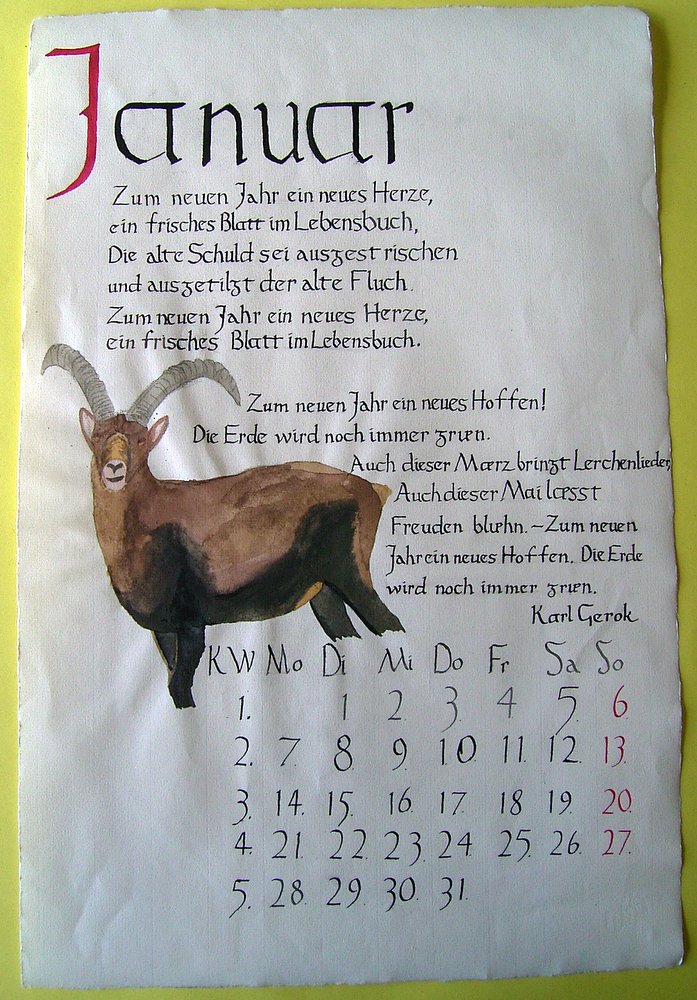 Januar
Zum neuen Jahr ein neues Herze,
ein frisches Blatt im Lebensbuch,
Die alte Schuld sei ausgestrischen
und ausgetilgt der alte Fluch.
Zum neuen Jahr ein neues Herze,
ein frisches Blatt im Lebensbuch.
Zum neuen Jahr ein neues Hoffen!
Die Erde wird noch immer grün.
Auch dieser Maerz bringt Lerchenlieder,
Auch dieser Mai laesst
Freuden bluehn. ~ Zum neuen
Jahr ein neues Hoffen. Die Erde
wird noch immer grün.
Karl Gerok
KW Mo Di Mi Do Fr Sa So
1. 1 2 3 4 5 6
2. 7. 8 9 10 11. 12 13.
3. 14. 15. 16 17. 18 19. 20
4. 21 22. 23. 24 25. 26. 27.
5. 28. 29. 30. 31.